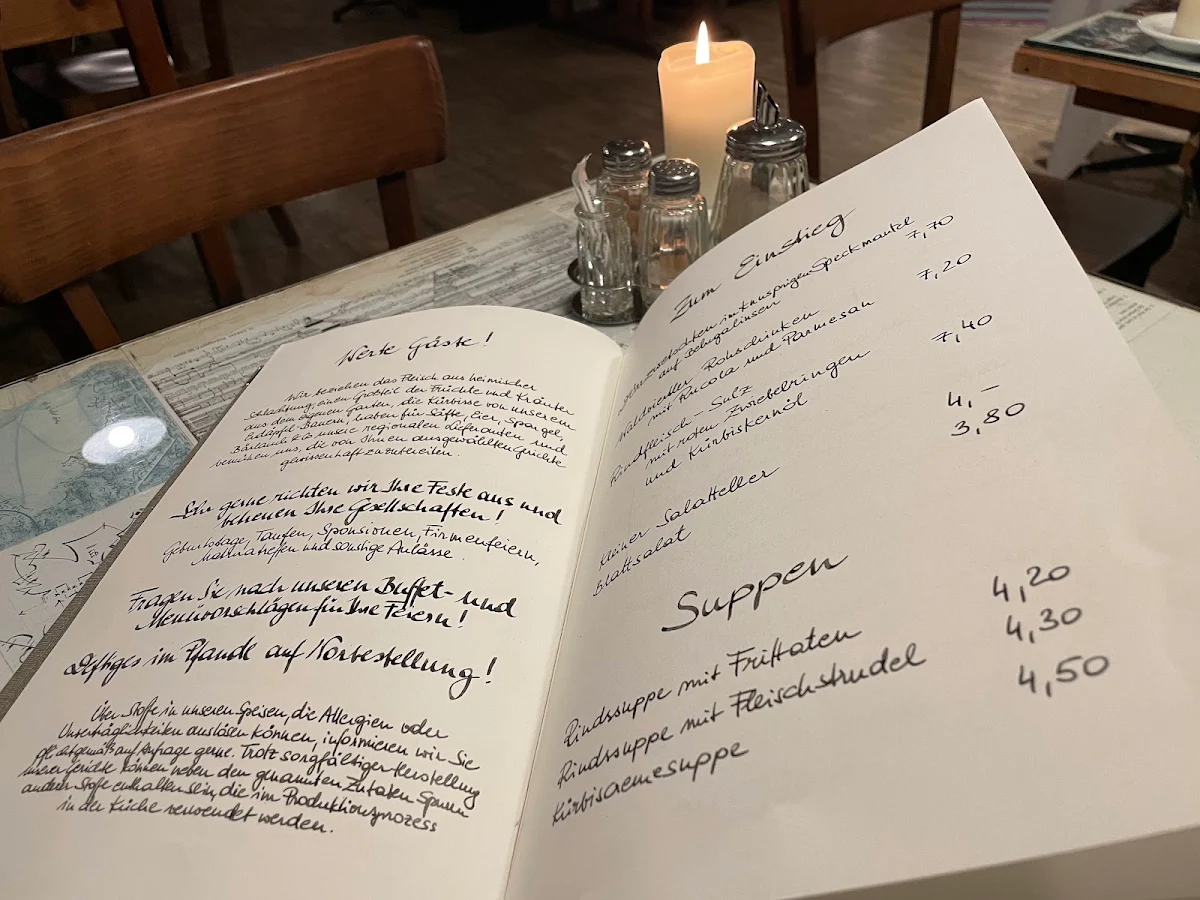 Werte Gäste!
Wir beziehen das Fleisch aus heimischer
Schlachtung, einen Großteil der Früchte und Kräuter
aus dem eigenen Garten, die Kürbisse von unserem
Erdäpfel-Bauern, haben für Säfte, Eier, Spargel,
Bärlauch unsere regionalen Lieferanten und
bemühen uns, die von Ihnen ausgewählten Gerichte
gewissenhaft zuzubereiten.
Sehr gerne richten wir Ihre Feste aus und
betreuen Ihre Gesellschaften!
Geburtstage, Taufen, Sponsionen, Firmenfeiern,
Maturatreffen und sonstige Anlässe.
Fragen Sie nach unseren Buffet- und
Menüvorschlägen für Ihre Feiern!
Deftiges im Pfandl auf Vorbestellung!
Über Stoffe in unseren Speisen, die Allergien oder
Unverträglichkeiten auslösen können, informieren wir Sie
auf Anfrage gerne. Trotz sorgfältiger Herstellung
unserer Gerichte können neben den genannten Zutaten Spuren
anderer Stoffe enthalten sein, die im Produktionsprozess
in der Küche verwendet werden.
Zum Einstieg
im knusprigen Speckmantel
auf Belugalinsen 7,70
Rohschinken
mit Rucola und Parmesan 7,20
Rindfleisch-Sulz
mit roten Zwiebelringen
und Kürbiskernöl 7,40
Kleiner Salatteller 4,-
Blattsalat 3,80
Suppen
Rindssuppe mit Frittaten 4,20
Rindssuppe mit Fleischstrudel 4,30
Kürbiscremesuppe 4,50